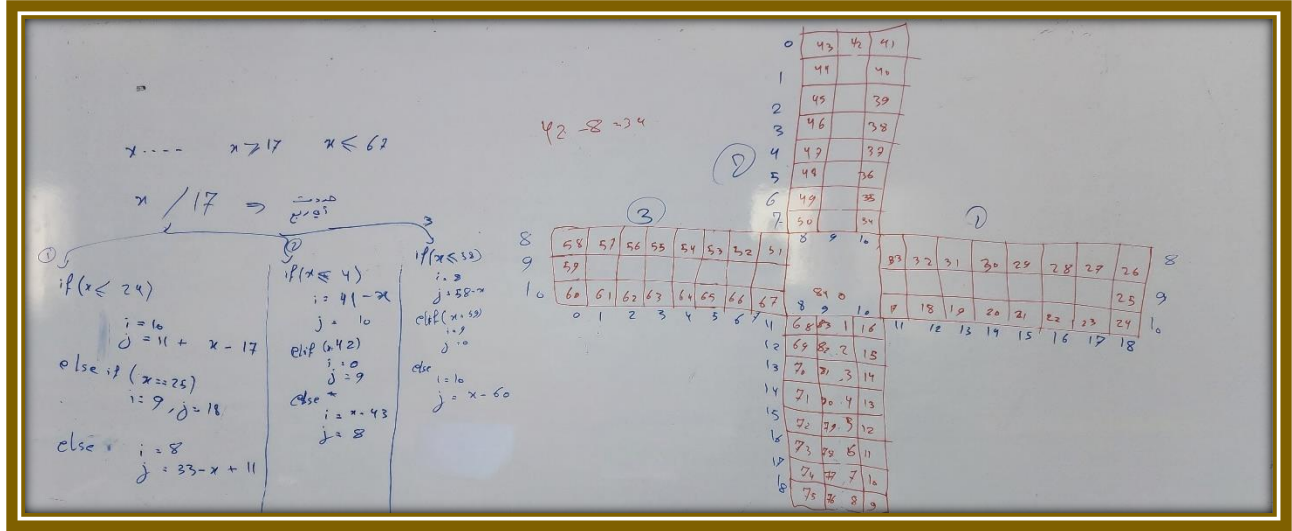 x.... x≥17 x≤67
x / 17 ⇒
①
if(x≤24)
i=10
j=11+ x-17
else if (x==25)
i=9, j=18
else i=8
j=33-x+11
②
if(x≤ 4)
i=41-x
j= 10
elif(x42)
i=0
j=9
else
i=x-43
j=8
3
if(x≤58)
i=8
j=58-x
elif(x=59)
i=9
j=0
else
i=10
j=x-60
42-8=34
②
0 43 42 41
1 44 40
2 45 39
3 46 38
4 47 37
5 48 36
6 49 35
7 50 34
8 9 10
③
8 58 57 56 55 54 53 52 51
9 59
10 60 61 62 63 64 65 66 67
0 1 2 3 4 5 6 7
①
33 32 31 30 29 28 27 26 8
25 9
18 19 20 21 22 23 24 10
11 12 13 14 15 16 17 18
84 0
8 9 10
11 68 83 1 16
12 69 82 2 15
13 70 81 3 14
14 71 80 4 13
15 72 79 5 12
16 73 78 6 11
17 74 77 7 10
18 75 76 8 9